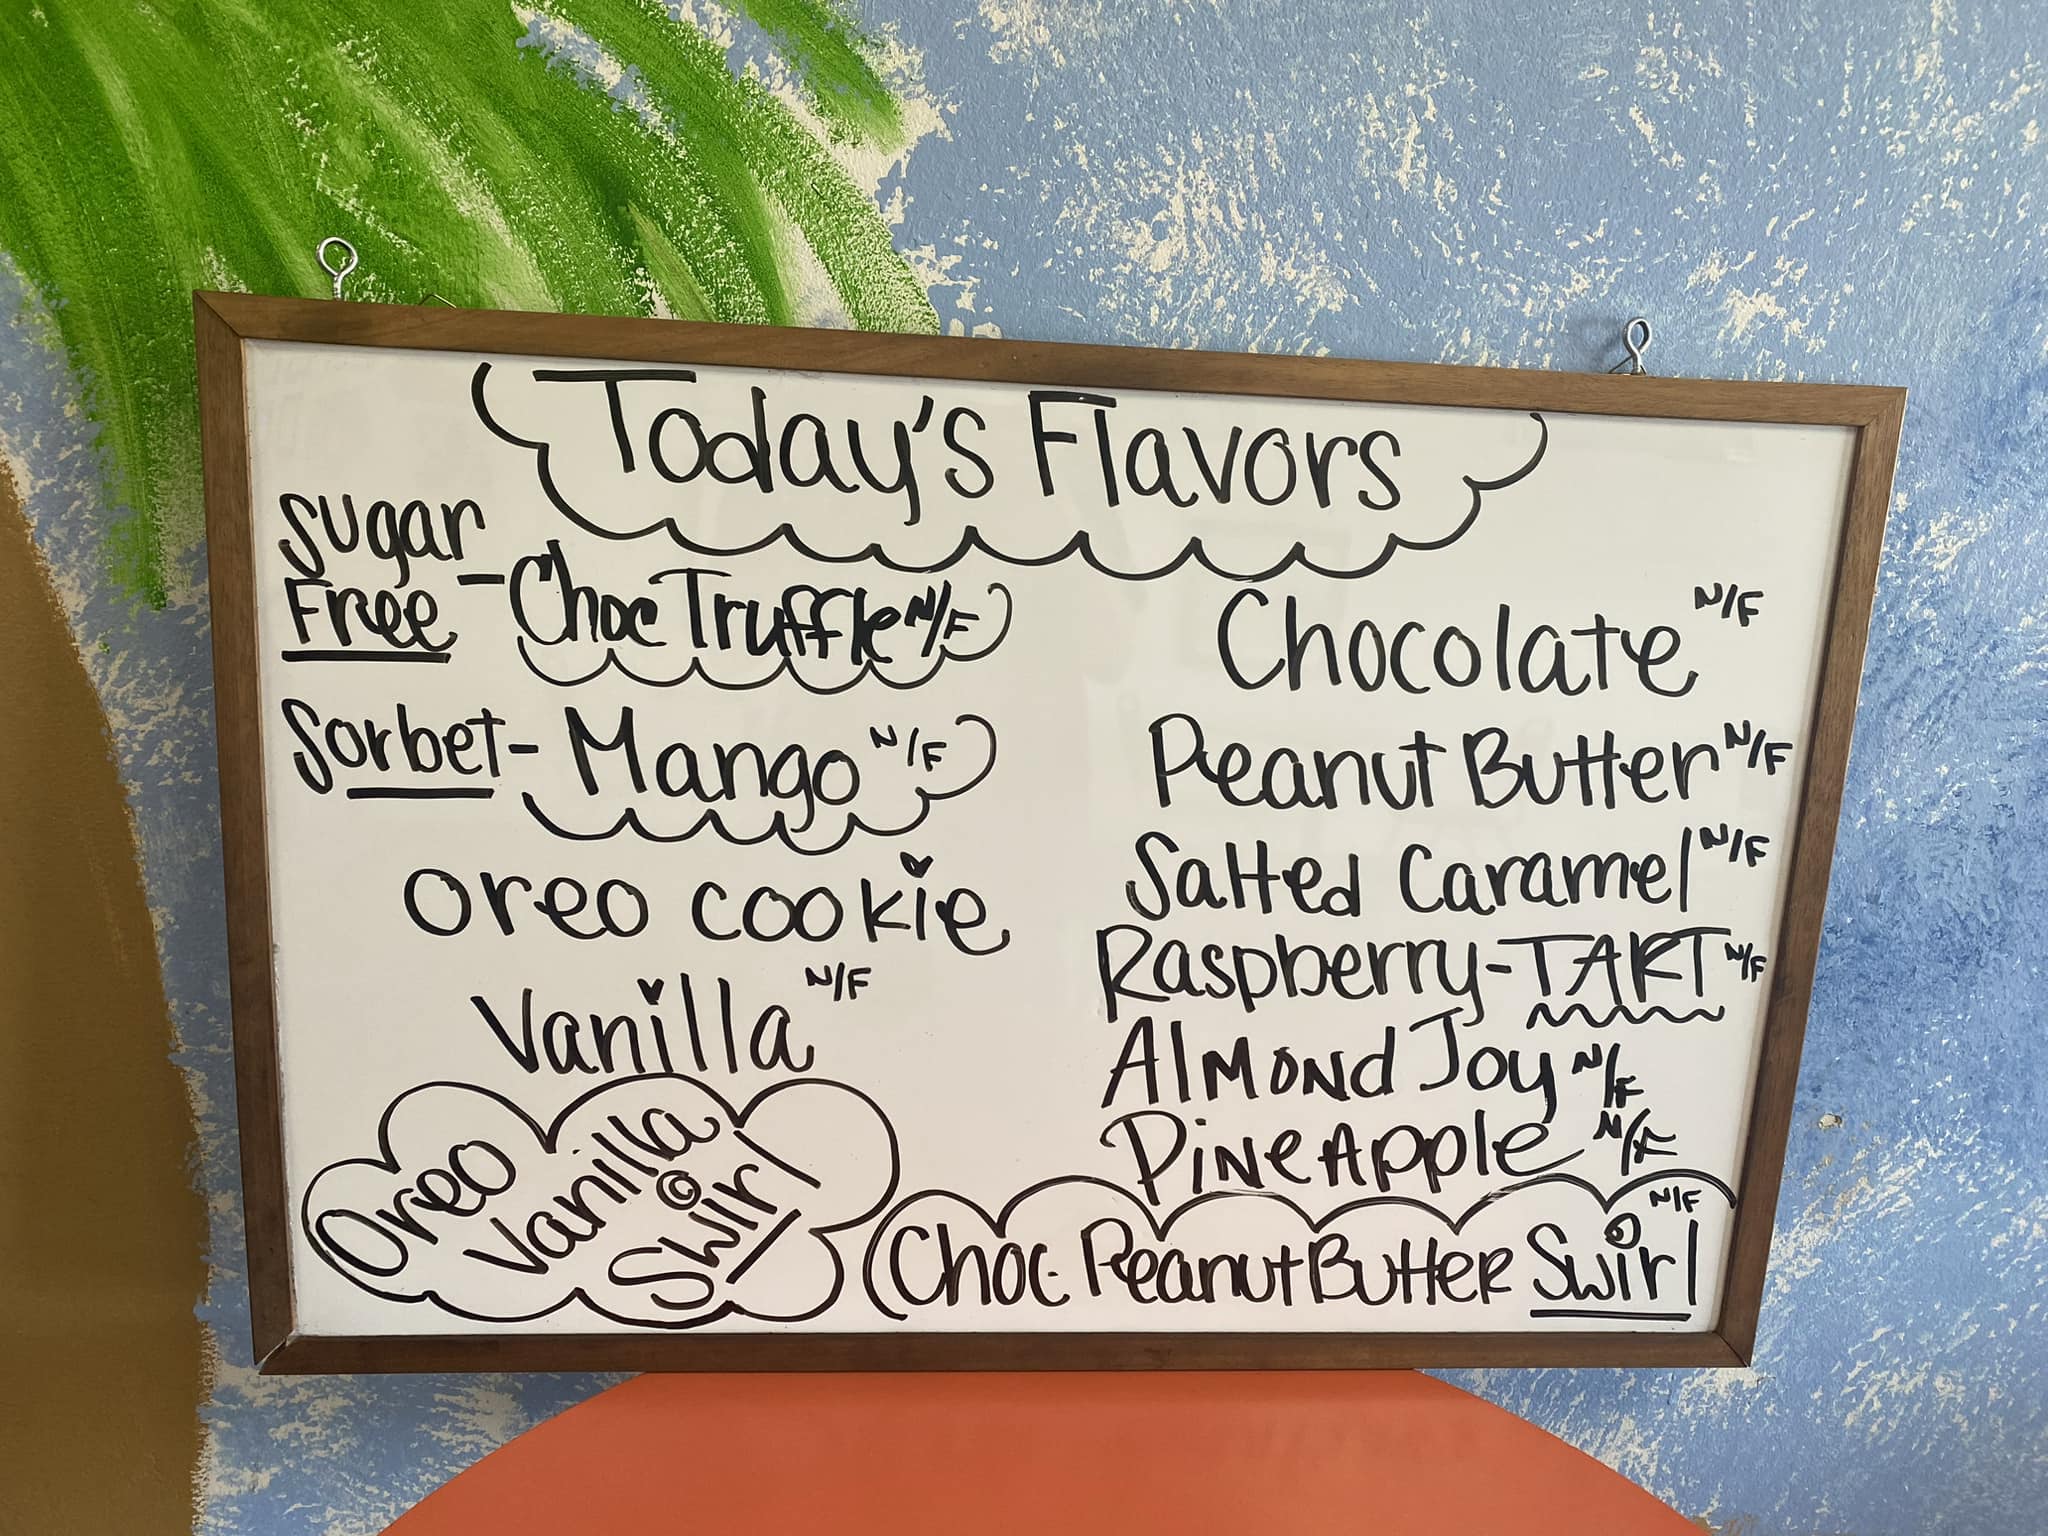 Today's Flavors
Sugar
Free - Choc Truffle N/F
Sorbet - Mango N/F
oreo cookie
Vanilla N/F
Oreo
Vanilla
Swirl
Chocolate N/F
Peanut Butter N/F
Salted Caramel N/F
Raspberry-TART N/F
Almond Joy N/F
Pineapple N/F
Choc Peanut Butter Swirl N/F